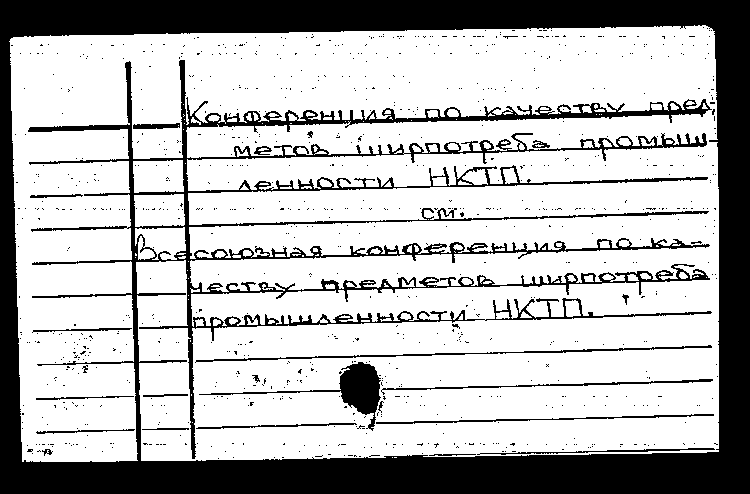 Конференция по качеству пред-
метов ширпотреба промыш-
ленности НКТП.
см.
Всесоюзная конференция по ка-
честву предметов ширпотреба
промышленности НКТП.